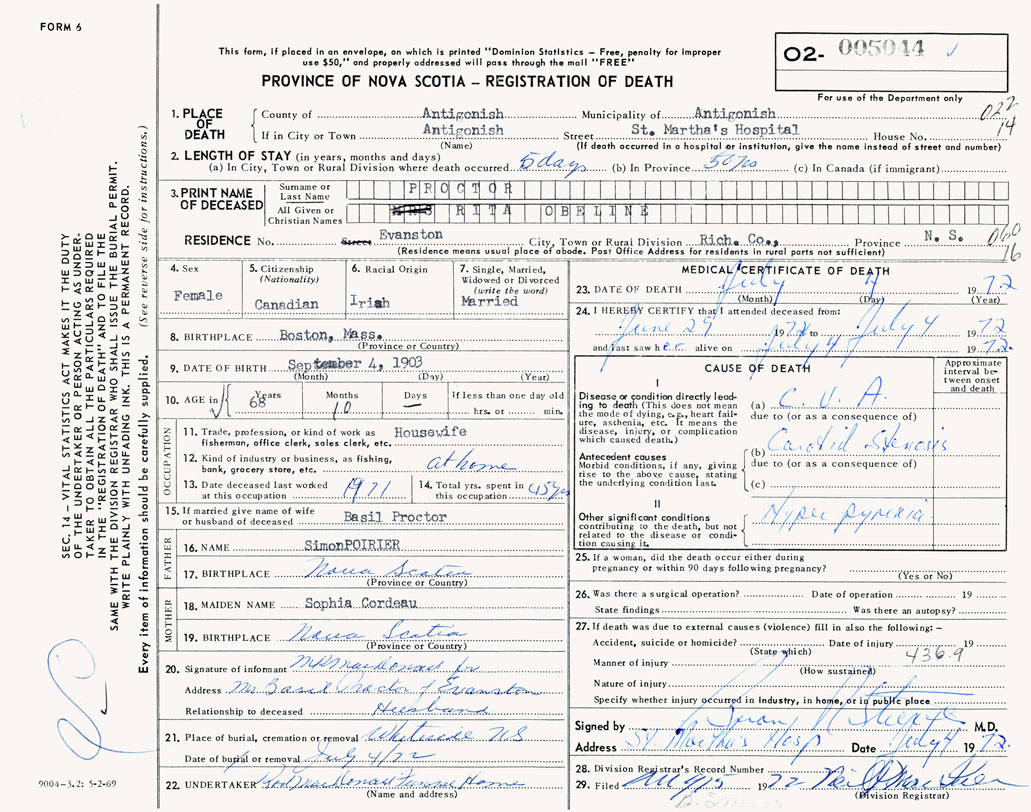 FORM 6
This form, if placed in an envelope, on which is printed "Dominion Statistics – Free, penalty for improper
use $50," and properly addressed will pass through the mail "FREE"
PROVINCE OF NOVA SCOTIA – REGISTRATION OF DEATH
02- 005044
For use of the Department only
022
14
1. PLACE OF DEATH
County of Antigonish Municipality of Antigonish
If in City or Town Antigonish Street St. Martha's Hospital House No.
(Name) (If death occurred in a hospital or institution, give the name instead of street and number)
2. LENGTH OF STAY (in years, months and days)
(a) In City, Town or Rural Division where death occurred 5 days (b) In Province 50 yrs (c) In Canada (if immigrant)
3. PRINT NAME OF DECEASED
Surname or Last Name PROCTOR
All Given or Christian Names RITA OBELINE
RESIDENCE No. Street Evanston City, Town or Rural Division Rich. Co., Province N. S.
(Residence means usual place of abode. Post Office Address for residents in rural parts not sufficient)
060
16
4. Sex
Female
5. Citizenship
(Nationality)
Canadian
6. Racial Origin
Irish
7. Single, Married,
Widowed or Divorced
(write the word)
Married
8. BIRTHPLACE Boston, Mass.
(Province or Country)
9. DATE OF BIRTH September 4, 1903
(Month) (Day) (Year)
10. AGE in Years Months Days If less than one day old
68 10 — hrs. or min.
OCCUPATION
11. Trade, profession, or kind of work as Housewife
fisherman, office clerk, sales clerk, etc.
12. Kind of industry or business, as fishing, at home
bank, grocery store, etc.
13. Date deceased last worked 1971
at this occupation
14. Total yrs. spent in 45 yrs
this occupation
15. If married give name of wife
or husband of deceased Basil Proctor
FATHER
16. NAME SimonPOIRIER
17. BIRTHPLACE Nova Scotia
(Province or Country)
MOTHER
18. MAIDEN NAME Sophia Cordeau
19. BIRTHPLACE Nova Scotia
(Province or Country)
20. Signature of informant MacDonald for
Address Mr Basil Proctor, Evanston
Relationship to deceased Husband
21. Place of burial, cremation or removal Whiteside N S
Date of burial or removal July 4/72
22. UNDERTAKER MacDonald Funeral Home
(Name and address)
MEDICAL CERTIFICATE OF DEATH
23. DATE OF DEATH July 4 1972
(Month) (Day) (Year)
24. I HEREBY CERTIFY that I attended deceased from:
June 29 1972 to July 4 1972
and last saw her alive on July 4 1972
CAUSE OF DEATH
Approximate
interval be-
tween onset
and death
I
Disease or condition directly lead-
ing to death (This does not mean
the mode of dying, e.g., heart fail-
ure, asthenia, etc. It means the
disease, injury, or complication
which caused death.)
(a) C. V. A.
due to (or as a consequence of)
Antecedent causes
Morbid conditions, if any, giving
rise to the above cause, stating
the underlying condition last.
(b) Carotid Stenosis
due to (or as a consequence of)
(c)
II
Other significant conditions
contributing to the death, but not
related to the disease or condi-
tion causing it.
Hyper pyrexia
25. If a woman, did the death occur either during
pregnancy or within 90 days following pregnancy?
(Yes or No)
26. Was there a surgical operation? Date of operation 19
State findings Was there an autopsy?
27. If death was due to external causes (violence) fill in also the following: –
Accident, suicide or homicide? Date of injury 19
(State which) 436.9
Manner of injury
(How sustained)
Nature of injury
Specify whether injury occurred in industry, in home, or in public place
Signed by M.D.
Address St Martha's Hosp Date July 4 1972
28. Division Registrar's Record Number
29. Filed 1972
(Division Registrar)
SEC. 14 – VITAL STATISTICS ACT MAKES IT THE DUTY
OF THE UNDERTAKER OR PERSON ACTING AS UNDER-
TAKER TO OBTAIN ALL THE PARTICULARS REQUIRED
IN THE "REGISTRATION OF DEATH" AND TO FILE THE
SAME WITH THE DIVISION REGISTRAR WHO SHALL ISSUE THE BURIAL PERMIT.
WRITE PLAINLY WITH UNFADING INK. THIS IS A PERMANENT RECORD.
Every item of information should be carefully supplied. (See reverse side for instructions.)
9004-3.2: 5-2-69